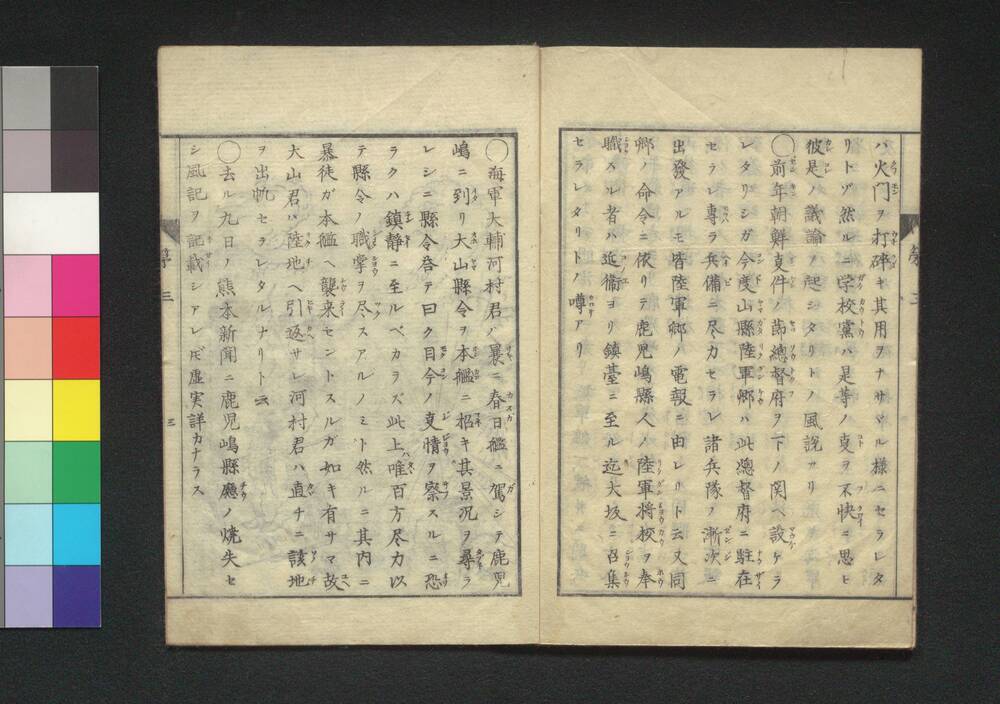 ハ火門ヲ打碎キ其用ヲナサヾル様ニセラレタ
リトゾ然ルニ学校黨ハ是等ノ㕝ヲ不快ニ思ヒ
彼是ノ議論ノ起シタリトノ風説アリ
◯前年朝鮮㕝件ノ節總督府ヲ下ノ関ヘ設ケラ
レタリシガ今度山縣陸軍卿ハ此總督府ニ駐在
セラレ専ラ兵備ニ尽力セラレ諸兵隊ノ漸次ニ
出發アルモ皆陸軍卿ノ電報ニ由レリト云又同
卿ノ命令ニ依リテ鹿児嶋縣人ノ陸軍将校ヲ奉
職スル者ハ近衞ヨリ鎮臺ニ至ル迄大坂ニ召集
セラレタリトノ噂アリ
◯海軍大輔河村君ハ曩ニ春日艦ニ駕シテ鹿児
嶋ニ到リ大山縣令ヲ本艦ニ招キ其景況ヲ尋ラ
レシニ縣令荅テ曰ク目今ノ㕝情ヲ察スルニ恐
ラクハ鎮静ニ至ルベカラズ此上唯百方尽力以
テ縣令ノ職掌ヲ尽スアルノミト然ルニ其内ニ
暴徒ガ本艦ヘ襲来セントスルガ如キ有サマ故
大山君ハ陸地ヘ引返サレ河村君ハ直チニ該地
ヲ出帆セラレタルナリト云
◯去ル九日ノ熊本新聞ニ鹿児嶋縣廳ノ焼失セ
シ風記ヲ記載シアレ𪜈虚実詳カナラス
第三
三